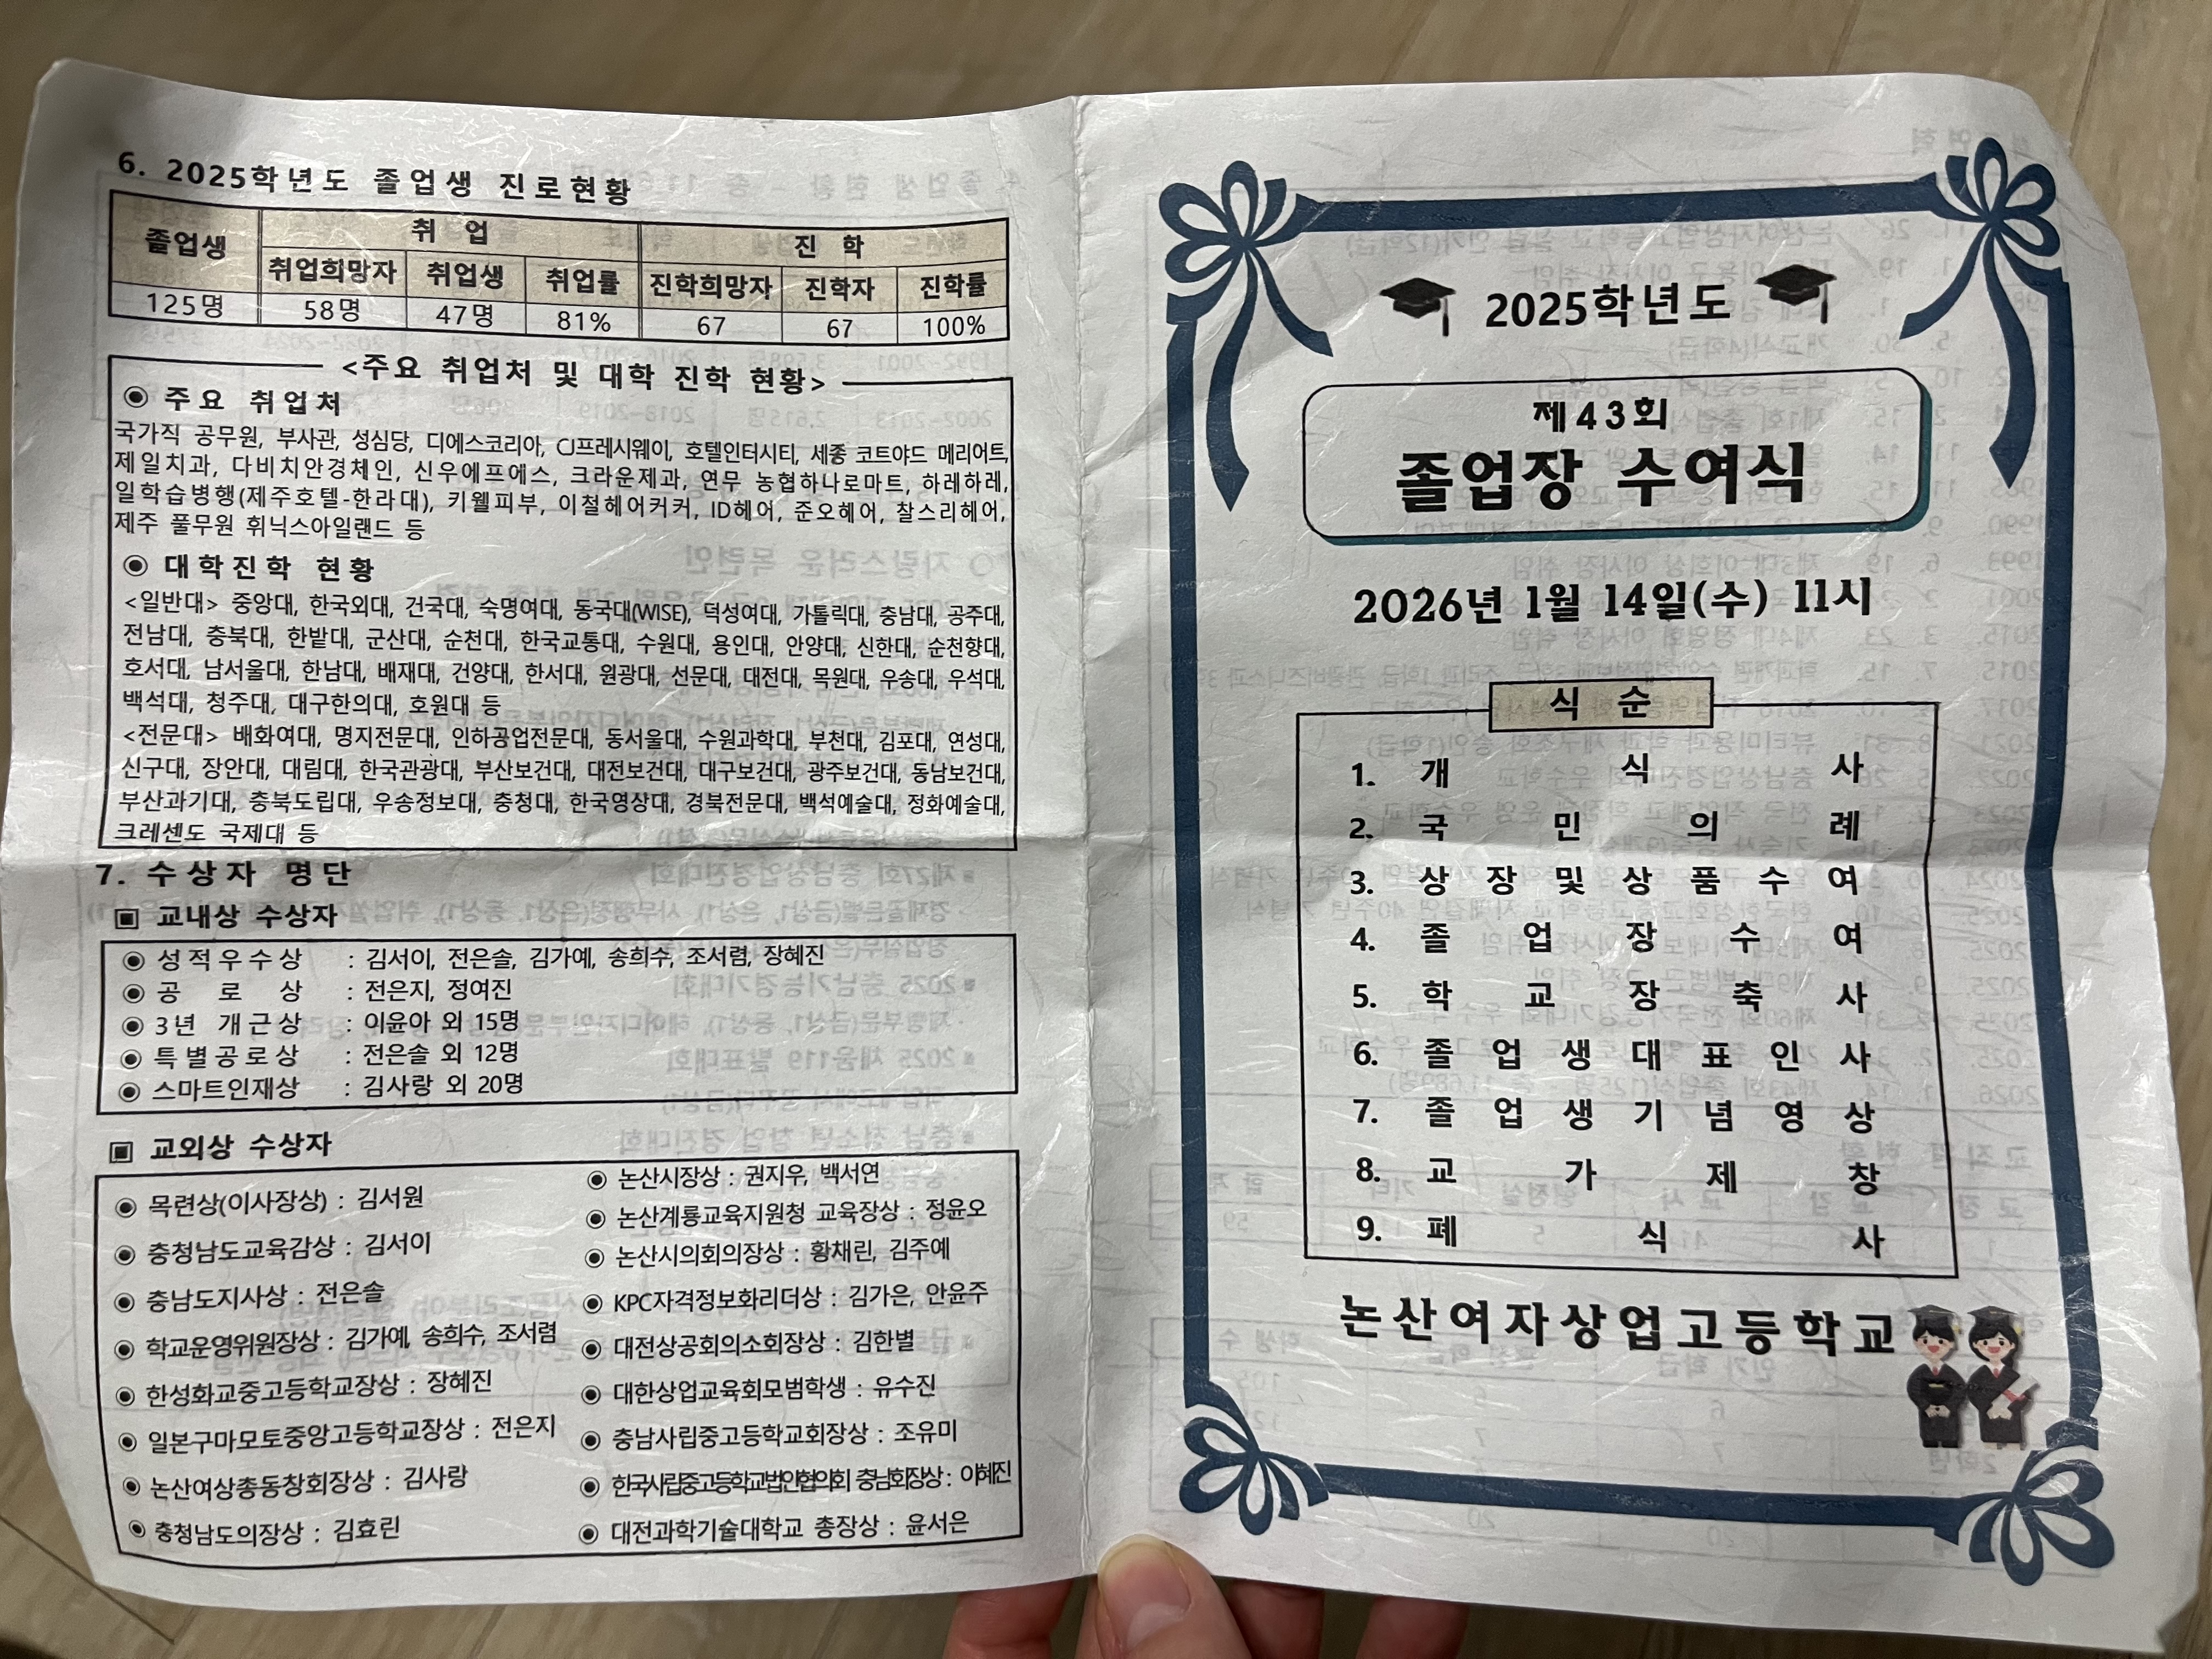 6. 2025학년도 졸업생 진로현황
졸업생 취 업 진 학
취업희망자 취업생 취업률 진학희망자 진학자 진학률
125명 58명 47명 81% 67 67 100%
<주요 취업처 및 대학 진학 현황>
◉ 주요 취업처
국가직 공무원, 부사관, 성심당, 디에스코리아, CJ프레시웨이, 호텔인터시티, 세종 코트야드 메리어트,
제일치과, 다비치안경체인, 신우에프에스, 크라운제과, 연무 농협하나로마트, 하레하레,
일학습병행(제주호텔-한라대), 키웰피부, 이철헤어커커, ID헤어, 준오헤어, 찰스리헤어,
제주 풀무원 휘닉스아일랜드 등
◉ 대학진학 현황
<일반대> 중앙대, 한국외대, 건국대, 숙명여대, 동국대(WISE), 덕성여대, 가톨릭대, 충남대, 공주대,
전남대, 충북대, 한밭대, 군산대, 순천대, 한국교통대, 수원대, 용인대, 안양대, 신한대, 순천향대,
호서대, 남서울대, 한남대, 배재대, 건양대, 한서대, 원광대, 선문대, 대전대, 목원대, 우송대, 우석대,
백석대, 청주대, 대구한의대, 호원대 등
<전문대> 배화여대, 명지전문대, 인하공업전문대, 동서울대, 수원과학대, 부천대, 김포대, 연성대,
신구대, 장안대, 대림대, 한국관광대, 부산보건대, 대전보건대, 대구보건대, 광주보건대, 동남보건대,
부산과기대, 충북도립대, 우송정보대, 충청대, 한국영상대, 경북전문대, 백석예술대, 정화예술대,
크레센도 국제대 등
7. 수상자 명단
▣ 교내상 수상자
◉ 성적우수상 : 김서이, 전은솔, 김가예, 송희수, 조서렴, 장혜진
◉ 공 로 상 : 전은지, 정여진
◉ 3년 개근상 : 이윤아 외 15명
◉ 특별공로상 : 전은솔 외 12명
◉ 스마트인재상 : 김사랑 외 20명
▣ 교외상 수상자
◉ 목련상(이사장상) : 김서원
◉ 충청남도교육감상 : 김서이
◉ 충남도지사상 : 전은솔
◉ 학교운영위원장상 : 김가예, 송희수, 조서렴
◉ 한성화교중고등학교장상 : 장혜진
◉ 일본구마모토중앙고등학교장상 : 전은지
◉ 논산여상총동창회장상 : 김사랑
◉ 충청남도의장상 : 김효린
◉ 논산시장상 : 권지우, 백서연
◉ 논산계룡교육지원청 교육장상 : 정윤오
◉ 논산시의회의장상 : 황채린, 김주예
◉ KPC자격정보화리더상 : 김가은, 안윤주
◉ 대전상공회의소회장상 : 김한별
◉ 대한상업교육회모범학생 : 유수진
◉ 충남사립중고등학교회장상 : 조유미
◉ 한국사립중고등학교법인협의회 충남회장상 : 이혜진
◉ 대전과학기술대학교 총장상 : 윤서은
2025학년도
제43회
졸업장 수여식
2026년 1월 14일(수) 11시
식 순
1. 개 식 사
2. 국 민 의 례
3. 상 장 및 상 품 수 여
4. 졸 업 장 수 여
5. 학 교 장 축 사
6. 졸 업 생 대 표 인 사
7. 졸 업 생 기 념 영 상
8. 교 가 제 창
9. 폐 식 사
논산여자상업고등학교